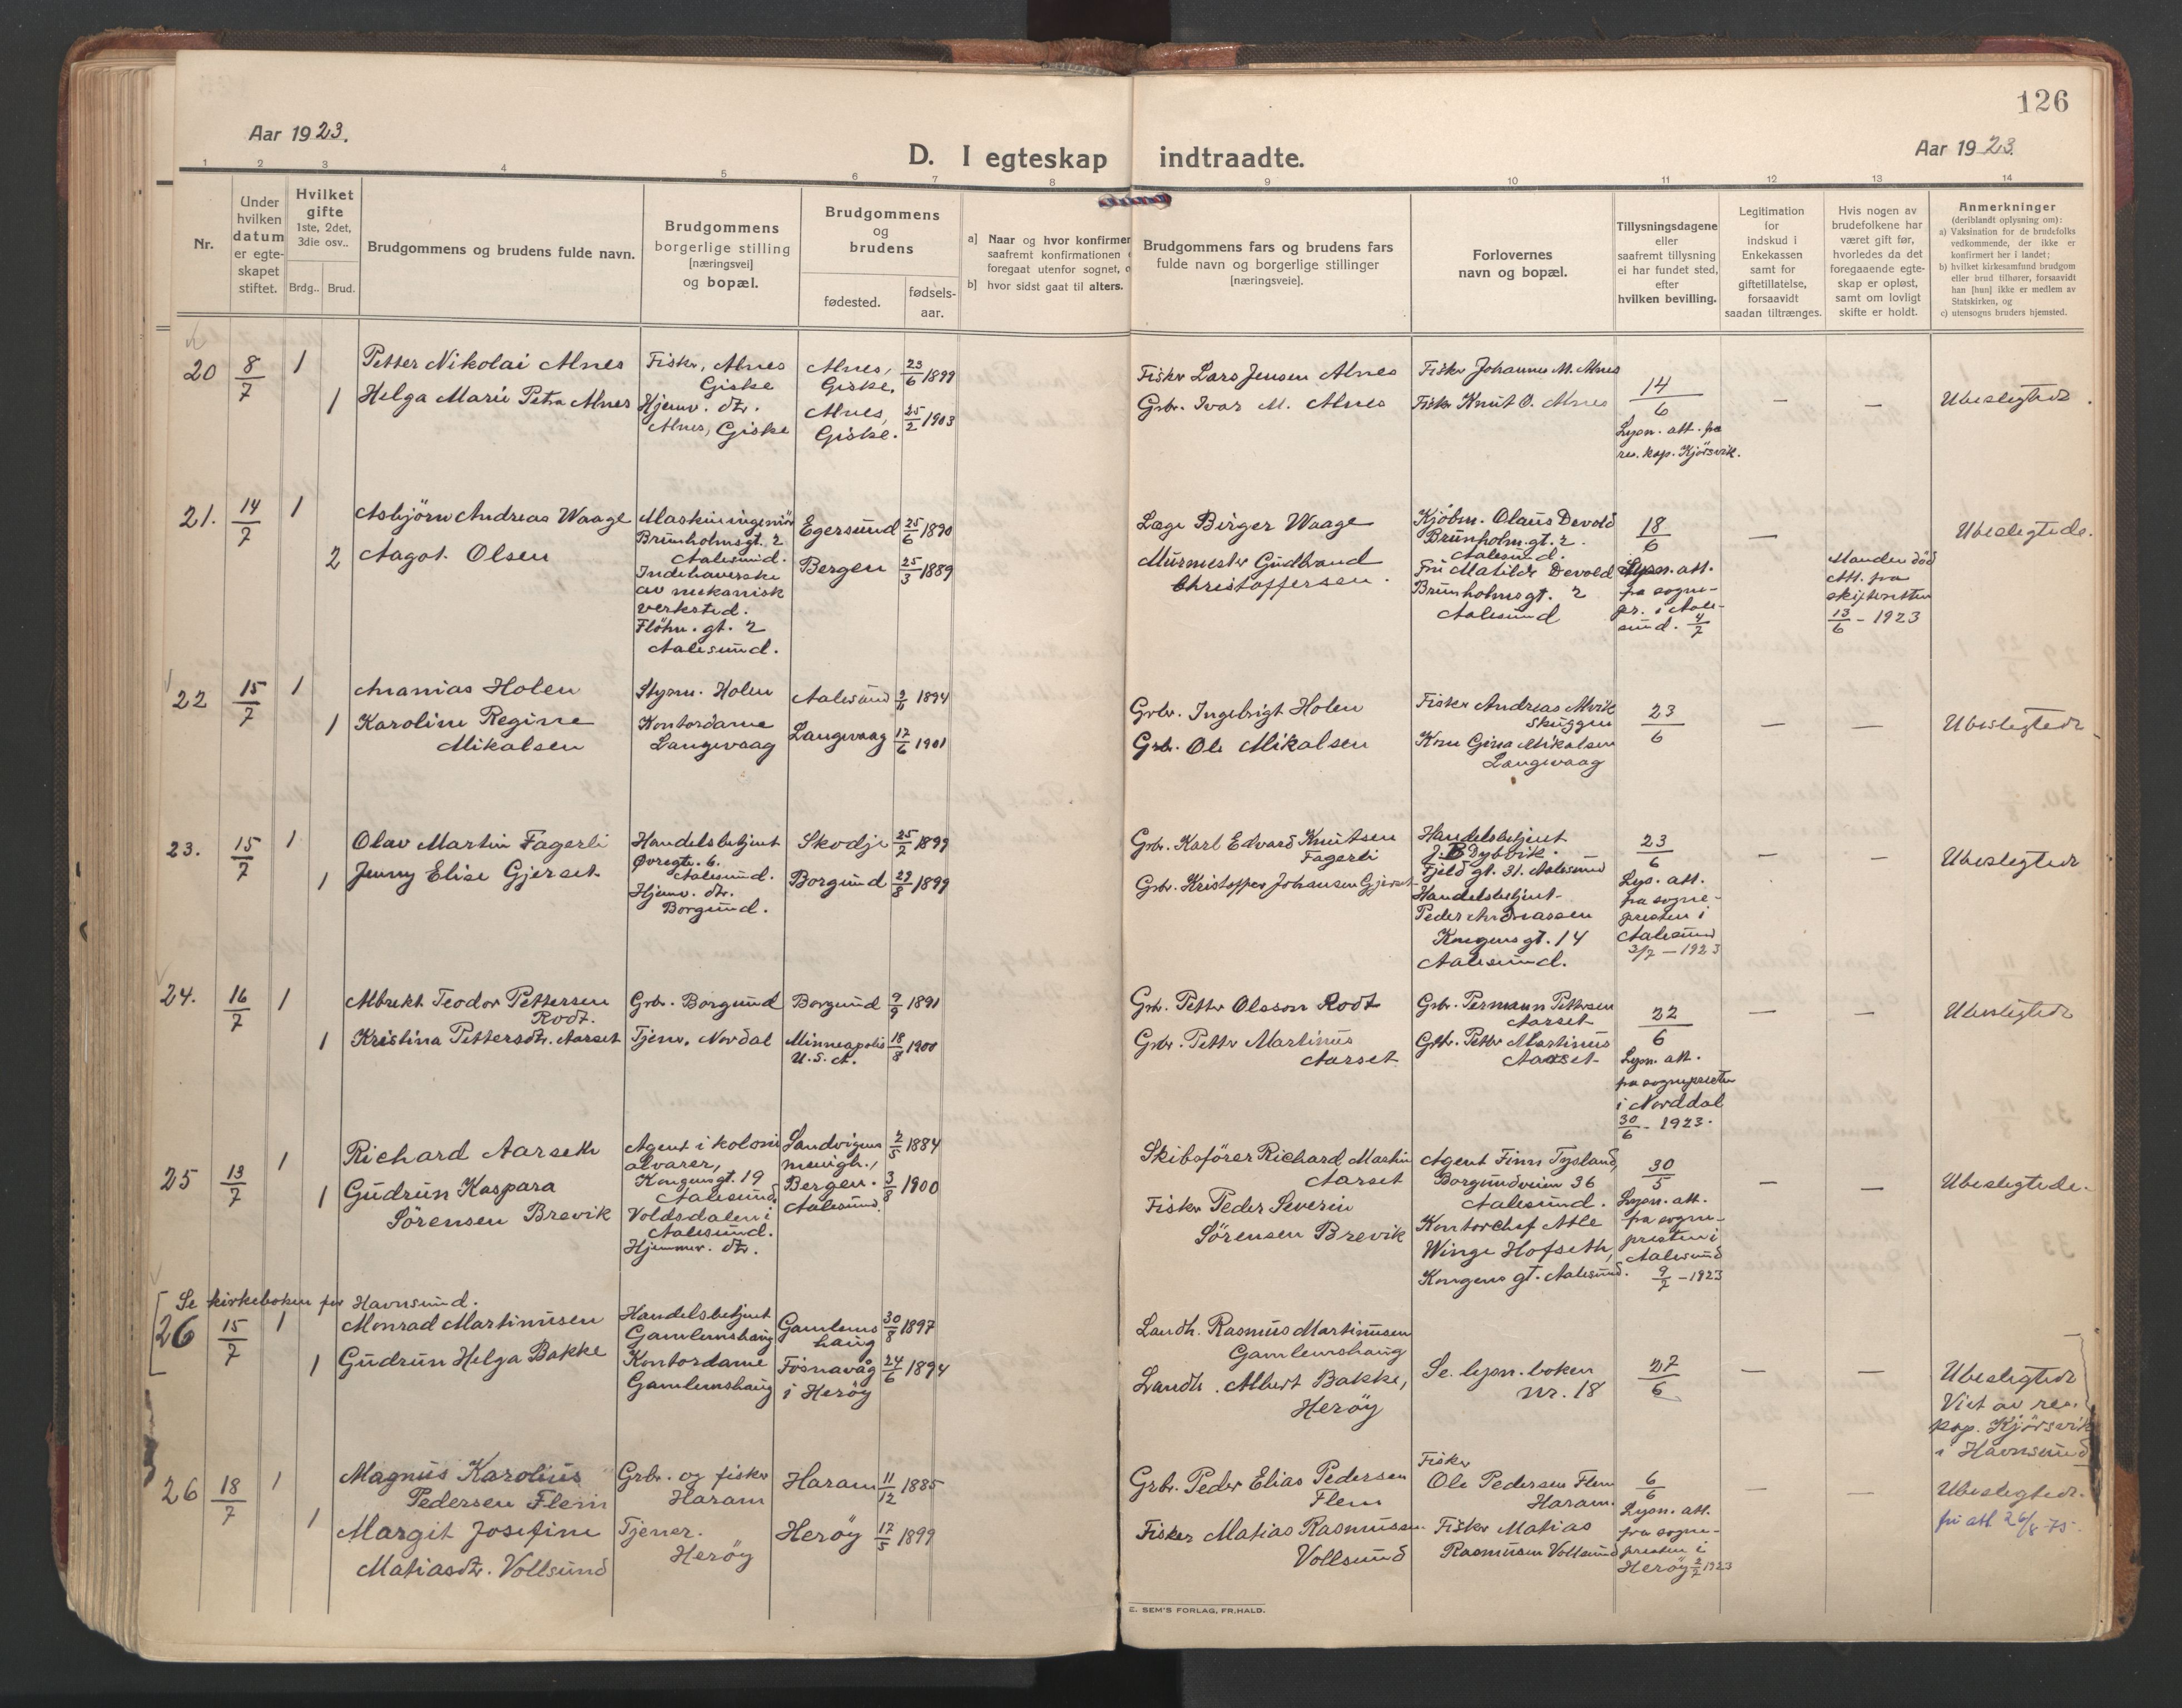 126
Aar 1923.
Aar 1923.
D. I egteskap indtraadte.
1 2 3 4 5 6 7 8 9 10 11 12 13 14
Nr.
Under hvilken datum er egte-skapet stiftet.
Hvilket gifte 1ste, 2det, 3die osv..
Brdg.. Brud.
Brudgommens og brudens fulde navn.
Brudgommens borgerlige stilling [næringsvei] og bopæl.
Brudgommens og brudens
fødested.
fødsels-aar.
a] Naar og hvor konfirmer
saafremt konfirmationen
foregaat utenfor sognet,
b] hvor sidst gaat til alters.
Brudgommens fars og brudens fars
fulde navn og borgerlige stillinger
[næringsveie].
Forlovernes
navn og bopæl.
Tillysningsdagene
eller
saafremt tillysning
ei har fundet sted,
efter
hvilken bevilling.
Legitimation
for
indskud i
Enkekassen
samt for
giftetillatelse,
forsaavidt
saadan tiltrænges.
Hvis nogen av
brudefolkene har
været gift før,
hvorledes da det
foregaaende egte-
skap er opløst,
samt om lovligt
skifte er holdt.
Anmerkninger
(deriblandt oplysning om):
a) Vaksination for de brudefolks
vedkommende, der ikke er
konfirmert her i landet;
b) hvilket kirkesamfund brudgom
eller brud tilhører, forsaavidt
han [hun] ikke er medlem av
Statskirken, og
c) utensogns bruders hjemsted.
20 8/7 1
Petter Nikolai Alnes
1 Helga Marie Petra Alnes
Fisker, Alnes
Giske
Hjemv. dtr.
Alnes, Giske
Alnes,
Giske,
Alnes,
Giske.
23/6 1899
25/2 1903
Fisker Lars Jensen Alnes
Grbr. Ivar M. Alnes
Fisker Johannes M. Alnes
Fisker Knut O. Alnes
14/6
Lysn. att. fra
res. kap. Kjörsvik.
—
—
Ubeslegtede.
21. 14/7 1
Asbjörn Andreas Waage
2 Aagot Olsen
Maskiningeniör
Brunholmsgt. 2
Aalesund.
Indehaverske
av mekanisk
verksted.
Flöhm. gt. 2
Aalesund.
Egersund
Bergen
25/6 1890
25/3 1889
Læge Birger Waage
Murmester Gudbrand
Christoffersen.
Kjöbm. Olaus Devold
Brunholm.gt. 2.
Aalesund.
Fru Matilde Devold
Brunholmsgt. 2
Aalesund
18/6
Lysn. att.
fra sogne-
pr. i Aale-
sund. 4/7
—
Manden död
Att. fra
skifteretten
13/6 - 1923
Ubeslegtede.
22 15/7 1
Ananias Holen
1 Karoline Regine
Mikalsen
Styrm. Holen
Kontordame
Langevaag
Aalesund
Langevaag
2/6 1894
17/6 1901
Grbr. Ingebrigt Holen
Grbr. Ole Mikalsen
Fisker Andreas Alvik
Skuggen
Kone Gina Mikalsen
Langevaag
23/6
—
—
Ubeslegtede
23. 15/7 1
Olav Martin Fagerli
1 Jenny Elise Gjerset
Handelsbetjent
Øvregt. 6.
Aalesund.
Hjemv. dtr.
Borgund.
Skodje
Borgund
25/2 1899
29/8 1899
Grbr. Karl Edvard Knutsen
Fagerli
Grbr. Kristoffer Johansen Gjerset
Handelsbetjent
J. B Dybvik.
Fjeld gt. 31. Aalesund
Handelsbetjent
Peder Andreassen
Kongens gt. 14
Aalesund.
23/6
Lys. att.
fra sogne-
presten i
Aalesund
3/7 - 1923
—
—
Ubeslegtede
24. 16/7 1
Albrekt Teodor Pettersen
Rodt.
1 Kristina Pettersdtr. Aarset
Grbr. Borgund
Tjener, Nordal
Borgund
Minneapolis
U.S.A.
9/9 1891
18/8 1900
Grbr. Petter Olsson Rodt
Grbr. Petter Martinus
Aarset
Grbr. Permann Pettersen
Aarset
Grbr. Petter Martinus
Aarset
22/6
Lysn. att.
fra sognepresten
i Norddal
30/6 - 1923.
—
—
Ubeslegtede
25 13/7 1
Richard Aarseth
1 Gudrun Kaspara
Sörensen Brevik
Agent i koloni
alvarer,
Kongensgt. 19
Aalesund
Voldsdalen i
Aalesund.
Hjemmev. dtr.
Sandvigens
menigh.,
Bergen.
Aalesund.
2/5 1884
3/8 1900
Skibsförer Richard Martin
Aarset
Fisker Peder Severin
Sörensen Brevik
Agent Finn Tysland,
Borgundveien 36
Aalesund.
Kontorchef Atle
Winge Hofseth,
Kongens gt. Aalesund.
30/5
Lysn. att.
fra sogne-
presten i
Aalesund
9/7 - 1923
—
—
Ubeslegtede.
Se kirkeboken for Havnsund.
26 15/7 1
Monrad Martinusen
1 Gudrun Helga Bakke
Handelsbetjent
Gamlemshaug
Kontordame
Gamlemshaug
Gamlems
haug
Fosnavåg
i Heröy
30/8 1897
24/6 1894
Landh. Rasmus Martinusen
Gamlemshaug
Landh. Albert Bakke,
Heröy
Se. lysn. boken
nr. 18
27/6
—
—
Ubeslegtede
Viet av res.
kap. Kjörsvik
i Havnsund
26 18/7 1
Magnus Karolius
Pedersen Flem
1 Margit Josefine
Matiasdtr. Vollsund
Grbr. og fisker
Haram
Tjener.
Heröy
Haram
Heröy
11/12 1885
17/5 1899
Grbr. Peder Elias Pedersen
Flem
Fisker Matias Rasmussen
Vollsund
Fisker
Ole Pedersen Flem
Haram.
Fisker Matias
Rasmusen Vollsund
6/6
Lysn. att.
fra sogne-
presten i
Heröy 2/7 1923
—
—
Ubeslegtede.
fri att 26/8-75.
E. SEM'S FORLAG, FR.HALD.